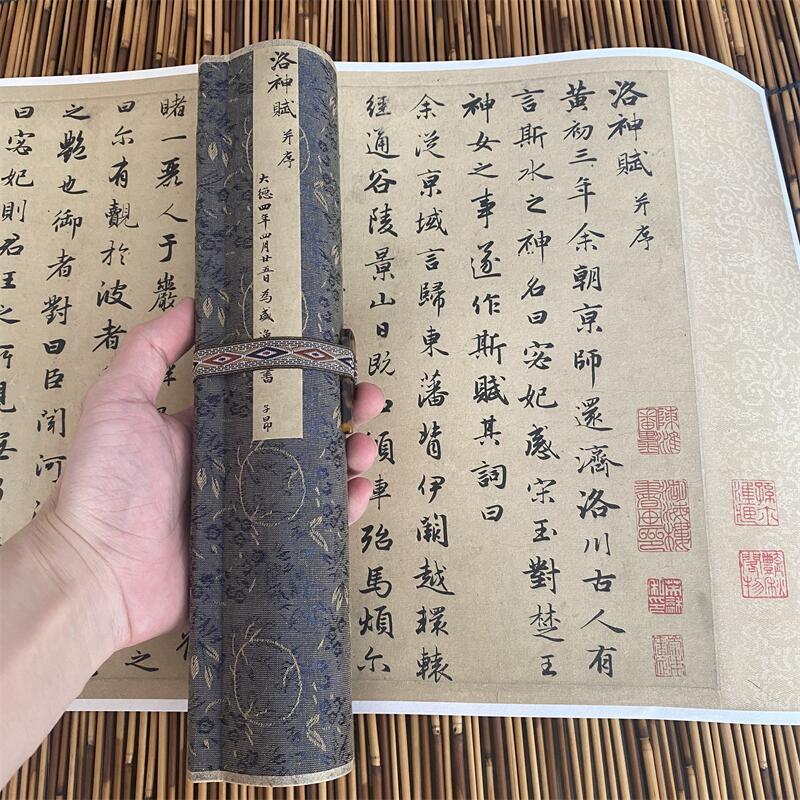 洛神賦 并序
黄初三年余朝京師還濟洛川古人有
言斯水之神名曰宓妃感宋玉對楚王
神女之事遂作斯賦其詞曰
余從京域言歸東藩背伊闕越轘轅
經通谷陵景山日既傾車殆馬煩尓
洛神賦 并序
大德四年四月廿五日為盛書 子昂
睹一麗人于巖
曰尓有覿於波者
之
之艷也御者對曰臣聞河
曰宓妃則君王之所見無